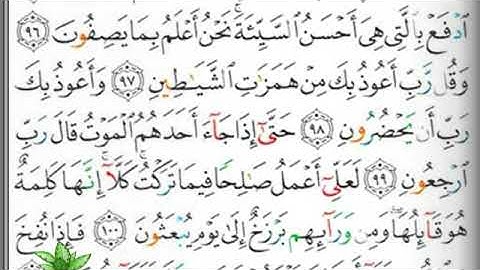 ٱدۡفَعۡ بِٱلَّتِي هِيَ أَحۡسَنُ ٱلسَّيِّئَةَۚ نَحۡنُ أَعۡلَمُ بِمَا يَصِفُونَ ٩٦
وَقُل رَّبِّ أَعُوذُ بِكَ مِنۡ هَمَزَٰتِ ٱلشَّيَٰطِينِ ٩٧ وَأَعُوذُ بِكَ
رَبِّ أَن يَحۡضُرُونِ ٩٨ حَتَّىٰٓ إِذَا جَآءَ أَحَدَهُمُ ٱلۡمَوۡتُ قَالَ رَبِّ
ٱرۡجِعُونِ ٩٩ لَعَلِّيٓ أَعۡمَلُ صَٰلِحٗا فِيمَا تَرَكۡتُۚ كَلَّآۚ إِنَّهَا كَلِمَةٌ
هُوَ قَآئِلُهَاۖ وَمِن وَرَآئِهِم بَرۡزَخٌ إِلَىٰ يَوۡمِ يُبۡعَثُونَ ١٠٠ فَإِذَا نُفِخَ